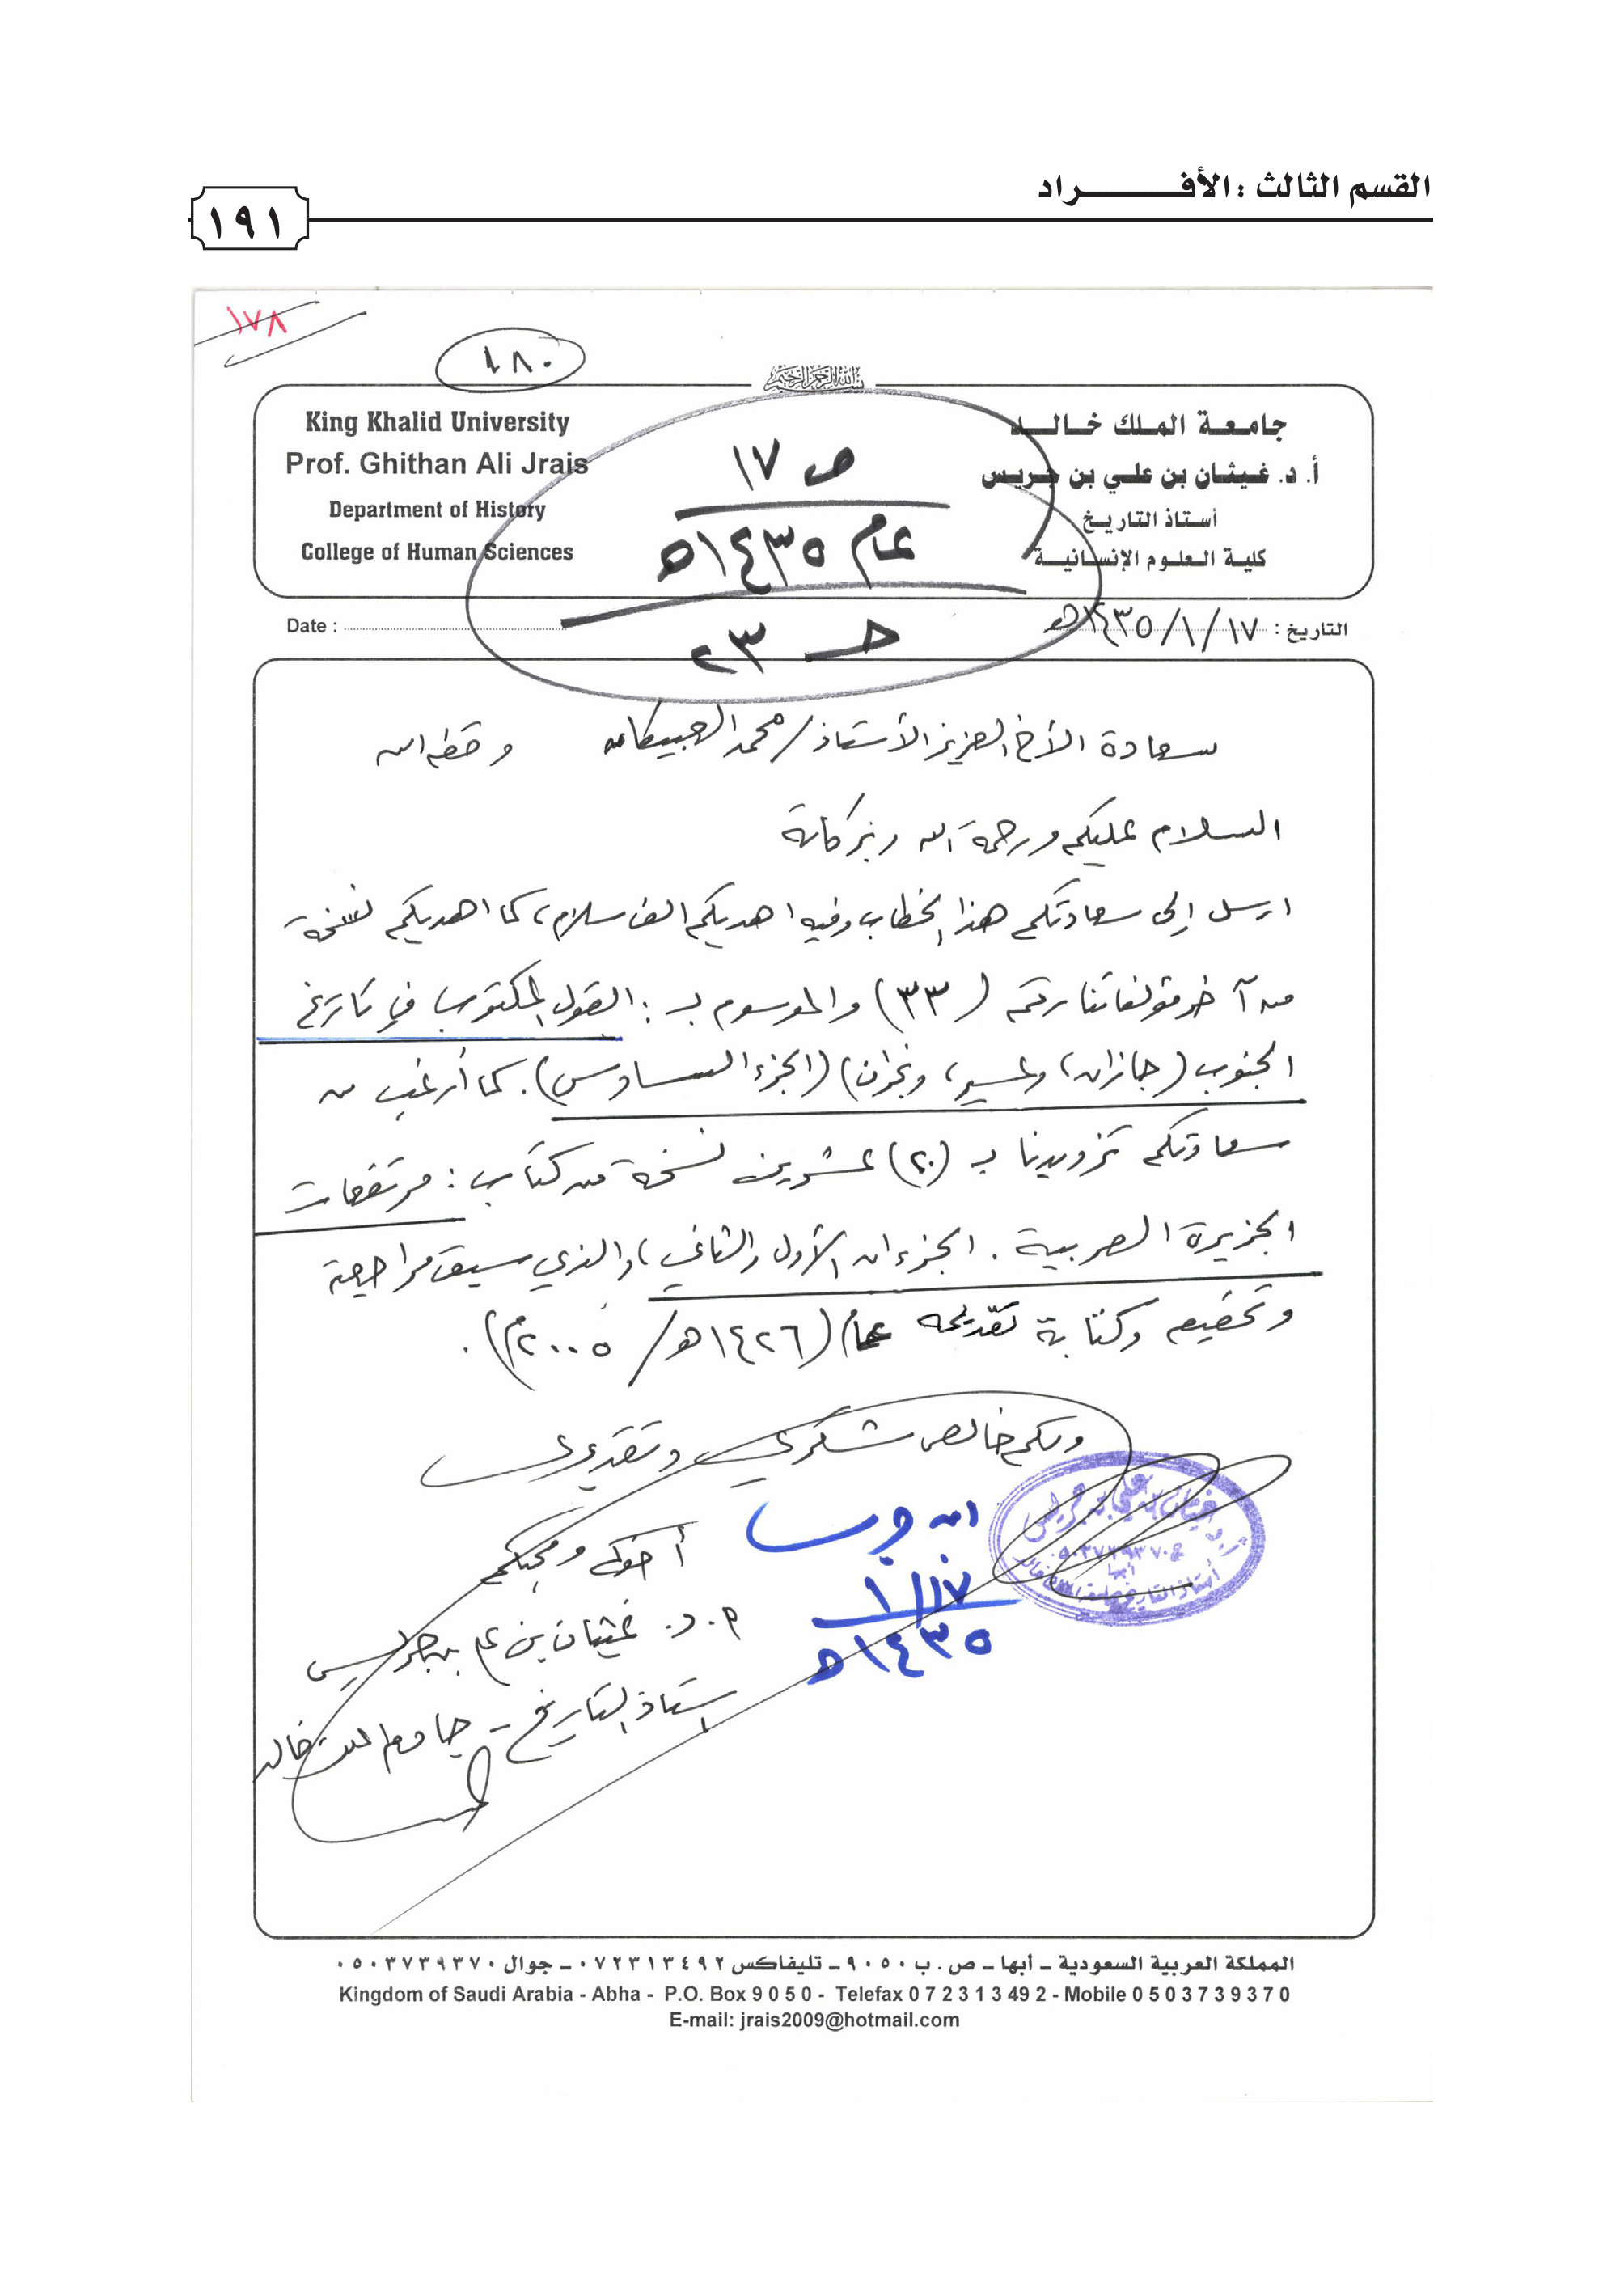 القسم الثالث : الأفـــراد
١٩١
١٧٨
٤٨٠
King Khalid University
Prof. Ghithan Ali Jrais
Department of History
College of Human Sciences
جامـعـة الملك خـالـد
أ. د. غيثـان بن علـي بن جريس
أستاذ التاريـخ
كليـة العلـوم الإنسـانيـة
ص ١٧
عام ١٤٣٥ه
حـ ٢٣
Date :
التاريخ : ١٤٣٥/١/١٧هـ
سعادة الأخ العزيز الأستاذ / محمد العبيكان وحفظه الله
السلام عليكم ورحمة الله وبركاته
ارسل إلى سعادتكم هذا الخطاب وفيه اهديكم الف سلام، كما اهديكم نسخة
من آخر مؤلفاتنا رقم (٣٣) والموسوم بـ : القول المكتوب في تاريخ
الجنوب (جازان، وعسير، ونجران) (الجزء السادس). كما أرغب من
سعادتكم تزويدنا بـ (٢٠) عشرين نسخة من كتاب : مرتفعات
الجزيرة العربية . الجزءان الأول والثاني، والذي سبق مراجعة
وتحقيق وكتابة تقديمه عام (١٤٢٦هـ / ٢٠٠٥م).
ولكم خالص شكري وتقديري
أخوكم ومحبكم
أ. د. غيثان بن علي بن جريس
استاذ التاريخ - جامعة الملك خالد
ابن جريس
١/١٧
١٤٣٥ه
أ. د. غيثان بن علي بن جريس
٠٥٠٣٧٣٩٣٧٠
أبها
المملكة العربية السعودية - أبها - ص . ب ٩٠٥٠ - تليفاكس ٠٧٢٣١٣٤٩٢ - جوال ٠٥٠٣٧٣٩٣٧٠
Kingdom of Saudi Arabia - Abha - P.O. Box 9 0 5 0 - Telefax 0 7 2 3 1 3 49 2 - Mobile 0 5 0 3 7 3 9 3 7 0
E-mail: jrais2009@hotmail.com